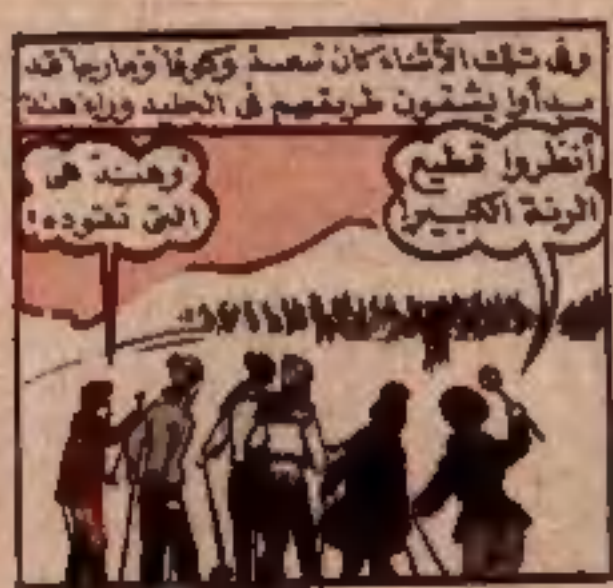 وفى تلك الأثناء كان نعمة وكوفا ومارجا قد
بدأوا يشقون طريقهم فى الجليد وراء هند
أنظروا قطيع
الرنة الكبير!
وهند هى
التى تقوده!